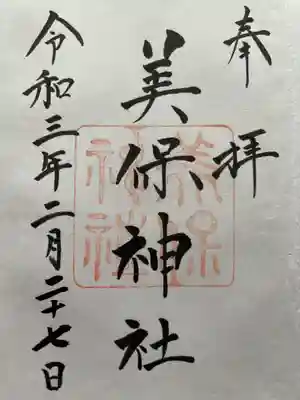 奉拝
美保神社
美保神社
令和三年二月二十七日